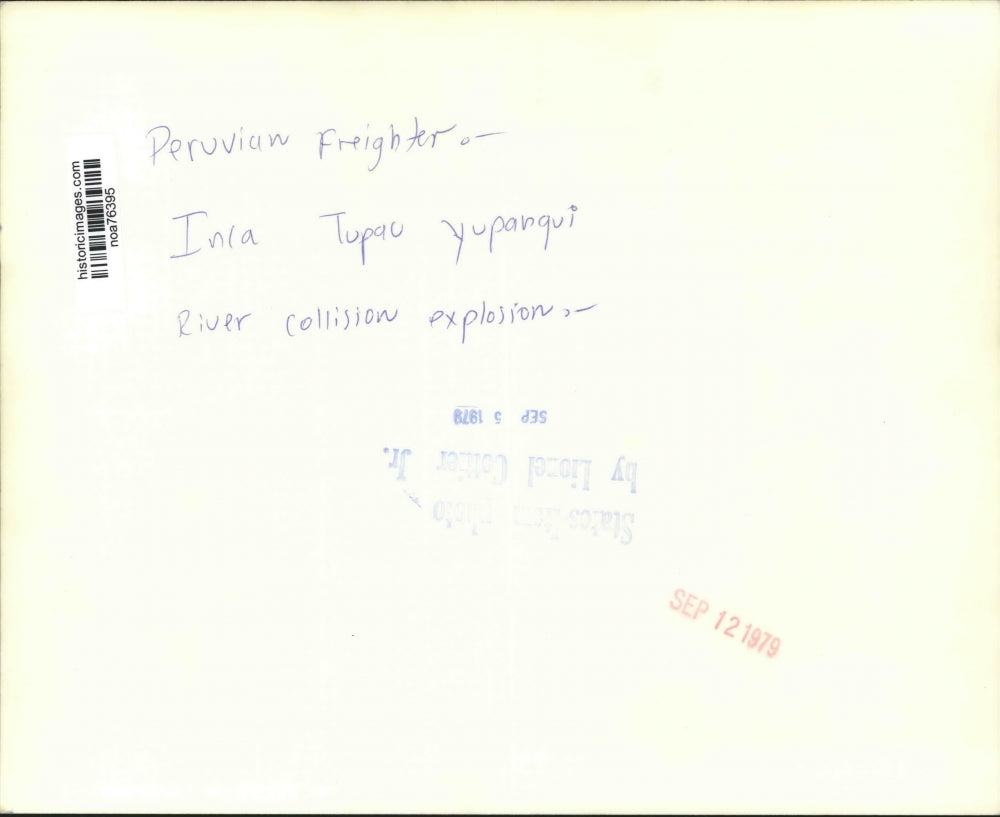 historicimages.com
noa76395
Peruvian Freighter.-
Inca Tupac Yupanqui
River collision explosion.-
SEP 5 1979
States-Item photo
by Lionel Cottier Jr.
SEP 12 1979